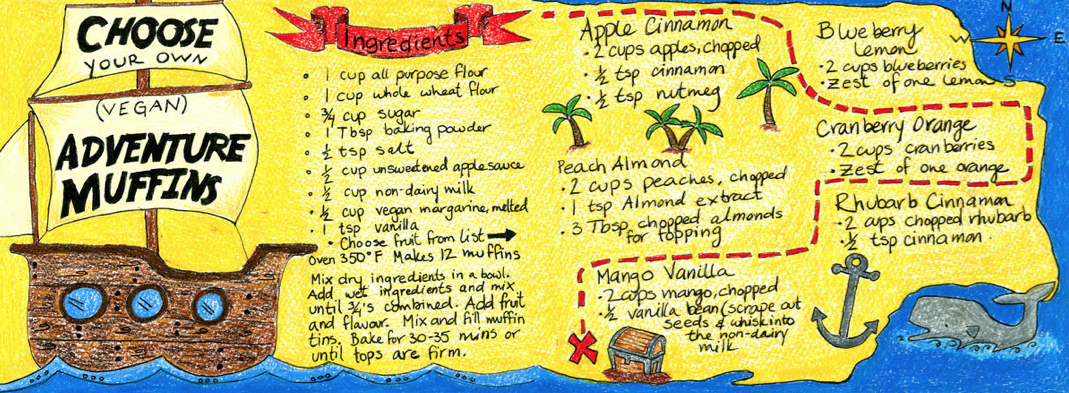 CHOOSE
YOUR OWN
(VEGAN)
ADVENTURE
MUFFINS
Ingredients
• 1 cup all purpose flour
• 1 cup whole wheat flour
• ¾ cup sugar
• 1 Tbsp baking powder
• ½ tsp salt
• ½ cup unsweetened applesauce
• ½ cup non-dairy milk
• ½ cup vegan margarine, melted
• 1 tsp vanilla
• Choose fruit from list →
oven 350°F Makes 12 muffins
Mix dry ingredients in a bowl.
Add wet ingredients and mix
until ¾'s combined. Add fruit
and flavour. Mix and fill muffin
tins. Bake for 30-35 mins or
until tops are firm.
Apple Cinnamon
• 2 cups apples, chopped
• ½ tsp cinnamon
• ½ tsp nutmeg
Peach Almond
• 2 cups peaches, chopped
• 1 tsp Almond extract
• 3 Tbsp chopped almonds
for topping
Mango Vanilla
• 2 cups mango, chopped
• ½ vanilla bean (scrape out
seeds & whisk into
the non-dairy
milk
Blueberry
Lemon
• 2 cups blueberries
• zest of one lemon
Cranberry Orange
• 2 cups cranberries
• zest of one orange
Rhubarb Cinnamon
• 2 cups chopped rhubarb
• ½ tsp cinnamon
N
W
E
S